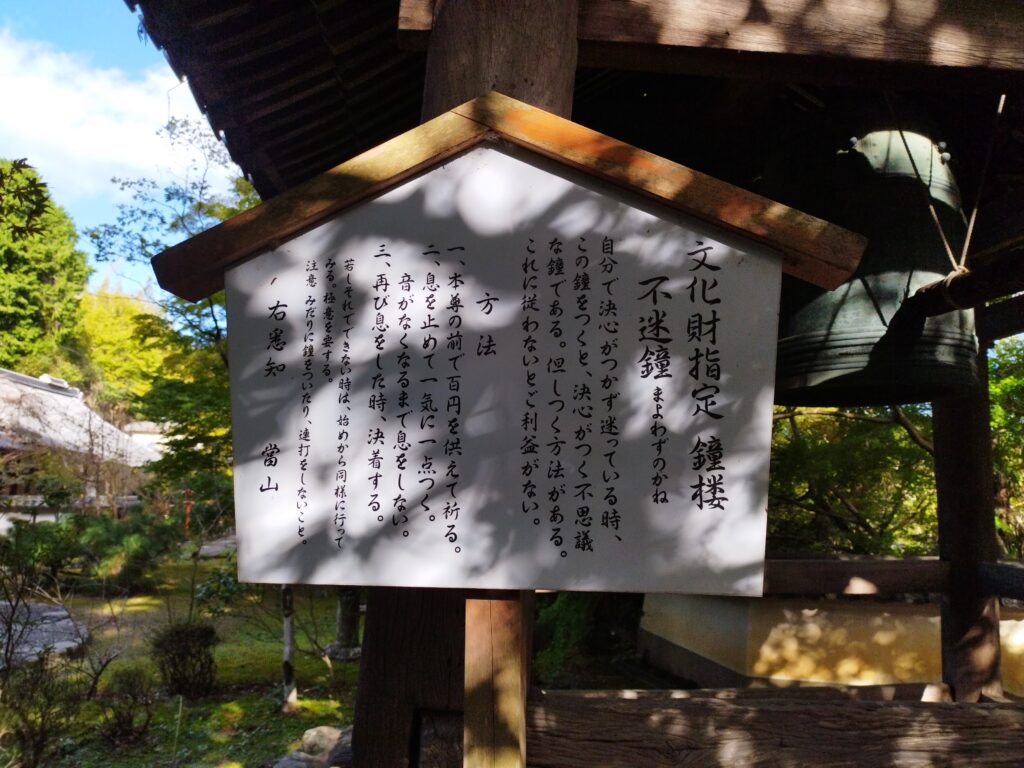 文化財指定 鐘楼
不迷鐘 まよわずのかね
自分で決心がつかず迷っている時、
この鐘をつくと、決心がつく不思議
な鐘である。但しつく方法がある。
これに従わないとご利益がない。
方法
一、本尊の前で百円を供えて祈る。
二、息を止めて一気に一点つく。
音がなくなるまで息をしない。
三、再び息をした時、決着する。
若しそれでできない時は、始めから同様に行って
みる。極意を要する。
注意 みだりに鐘をついたり、連打をしないこと。
右悉知 當山